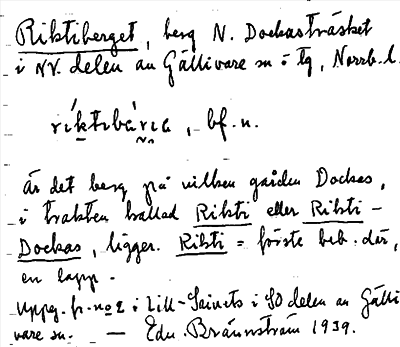 Riktiberget, berg N. Dockasträsket
i NV. delen av Gällivare sn o tg, Norrb. l.
ríktibæ̀rʝɛ, - bf. n.
är det berg på vilken gården Dockas,
i trakten kallad Rikti eller Rikti-
Dockas, ligger. Rikti = förste beb. där,
en lapp.
Uppg. fr. no 2 i Lill-Saivits i SO delen av Gälli
vare sn. — Edv. Brännström 1939.